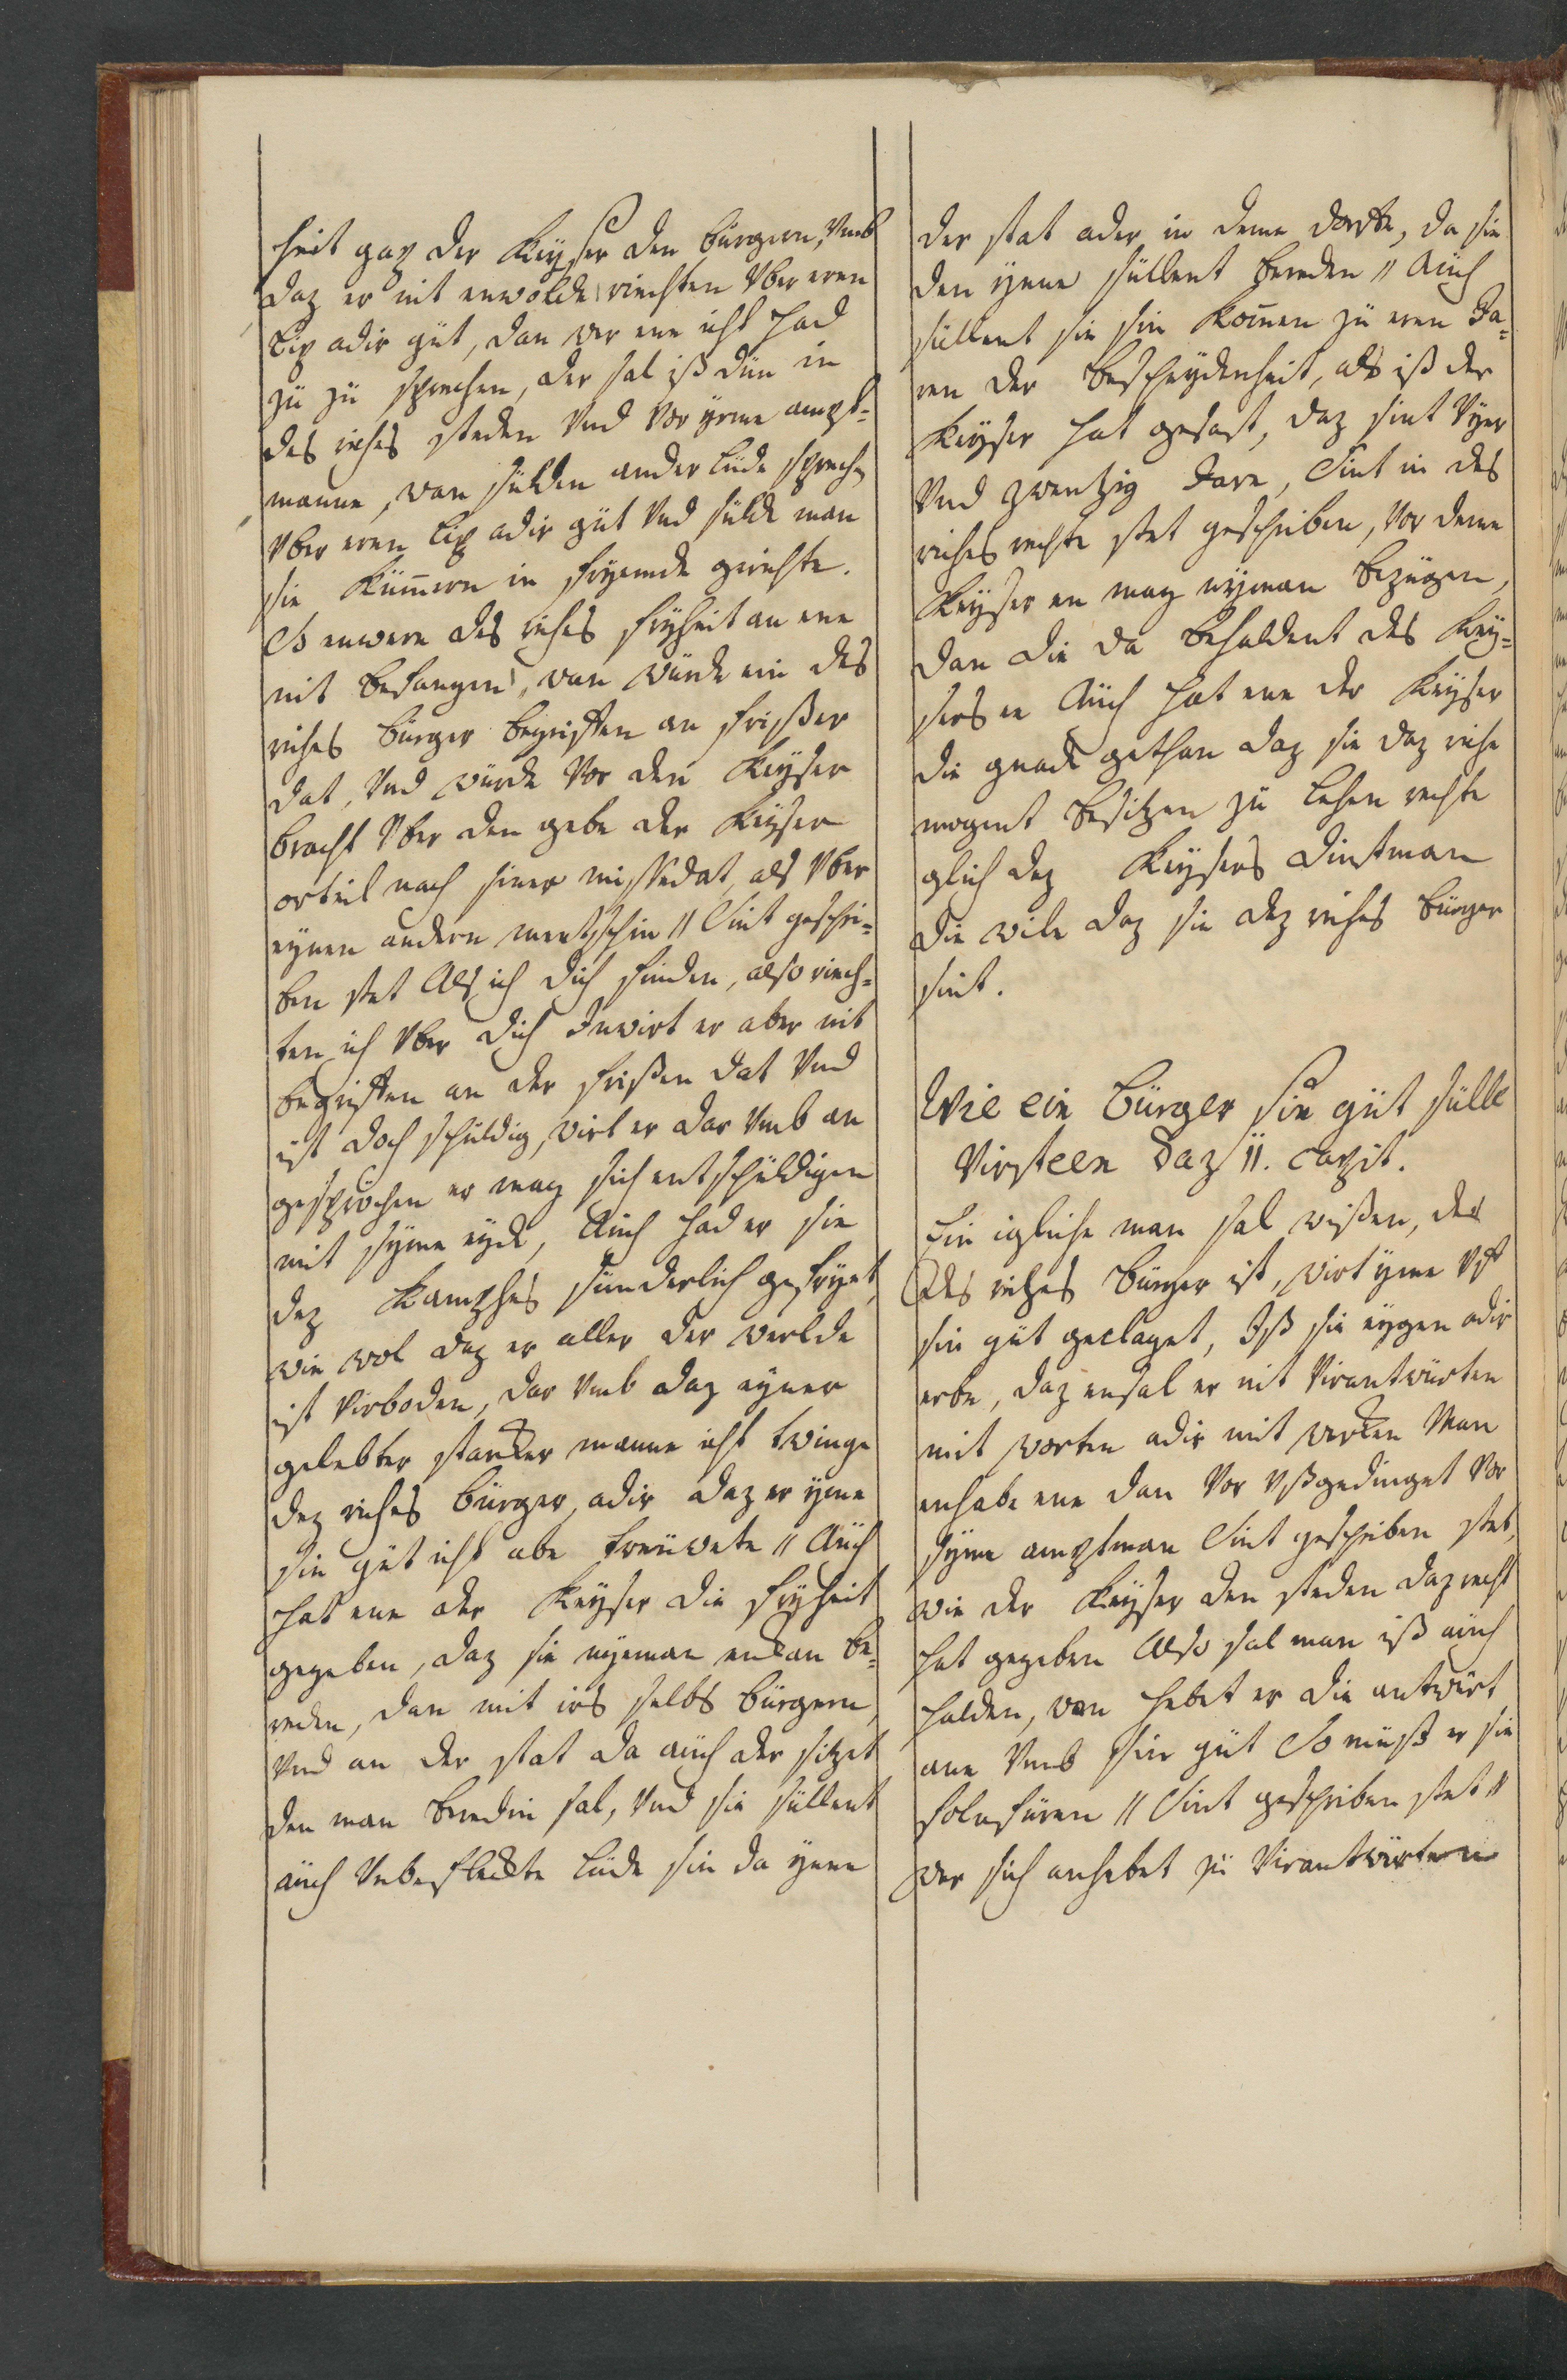 heit gap der Keyser den bürgern, Vmb
daz er nit enwolde riechten Vber eren
lip adir güt, dan wer ene icht had
zü zü sprechen, der sal iß dün in
des riches steden Vnd Vor yrme ampt-
manne, wan sülden ander lüde sprechen
Vber eren lip adir güt Vnd sülde man
sie kümern in fryemde gerichte.
So enwere des riches fryheit an ene
nit befangen, wan würde ein des
riches bürger begriffen an frißer
dat, Vnd würde Vor den Keyser
bracht Vber den gebe der Keyser
orteil nach siner missedat, als Vber
eynen andern mentschin // Sint geschri-
ben stet Als ich dich finden, also riech-
ten ich Vber dich Inwirt er aber nit
begriffen an der frißen dat Vnd
ist doch schüldig, wirt er dar Vmb an
gesprochen er mag sich entschüldigen
mit syme eyde, Auch had er sie
dez kampfes sünderlich gefryet,
wie wol daz er aller der werlde
ist Virboden, dar Vmb daz eyner
gelebter starcker manne icht twinge
dez riches bürger, adir daz er yme
sin güt icht abe freüwete // Aüch
hat ene der Keyser die fryheit
gegeben, daz sie nyeman enkan be-
reden, dan mit irs selbs bürgern,
Vnd an der stat da aüch der sitzet
den man beredin sal, Vnd sie süllent
aüch Vnbefleckte lüde sin da ynne
der stat ader in deme dorffe, da sie
den ynne süllent bereden // Aüch
süllent sie sin komen zü eren Ja-
ren der bescheydenheit, als iß der
Keyser hat gesast, daz sint Vyer
Vnd zwentzig Jare, Sint in des
riches rechte stet geschriben, Vor deme
Keyser en mag nyeman bezügen,
dan die da behaldent des Key-
sers ee Aüch hat ene der Keyser
die gnade gethan daz sie daz riche
mogent besitzen zü lehen rechte
glich dez Keysers dinstman
die wile daz sie dez riches bürger
sint.
Wie ein bürger sin güt sülle
Virsteen daz II. capit.
Ein igliche man sal wißen, der
des riches bürger ist, wirt yme Vff
sin güt geclaget, Iß sie eygen adir
erbe, daz ensal er nit Virantwürten
mit worten adir mit wercken Man
enhabe ene dan Vor Vßgedinget Vor
syme amptman Sint geschriben stet,
wie der Keyser den steden daz recht
hat gegeben Also sal man iß aüch
halden, wan hebet er die antwürt
ane Vmb sin güt So müß er sie
folnfüren // Sint geschriben stet //
wer sich anhebet zü Virantwürten